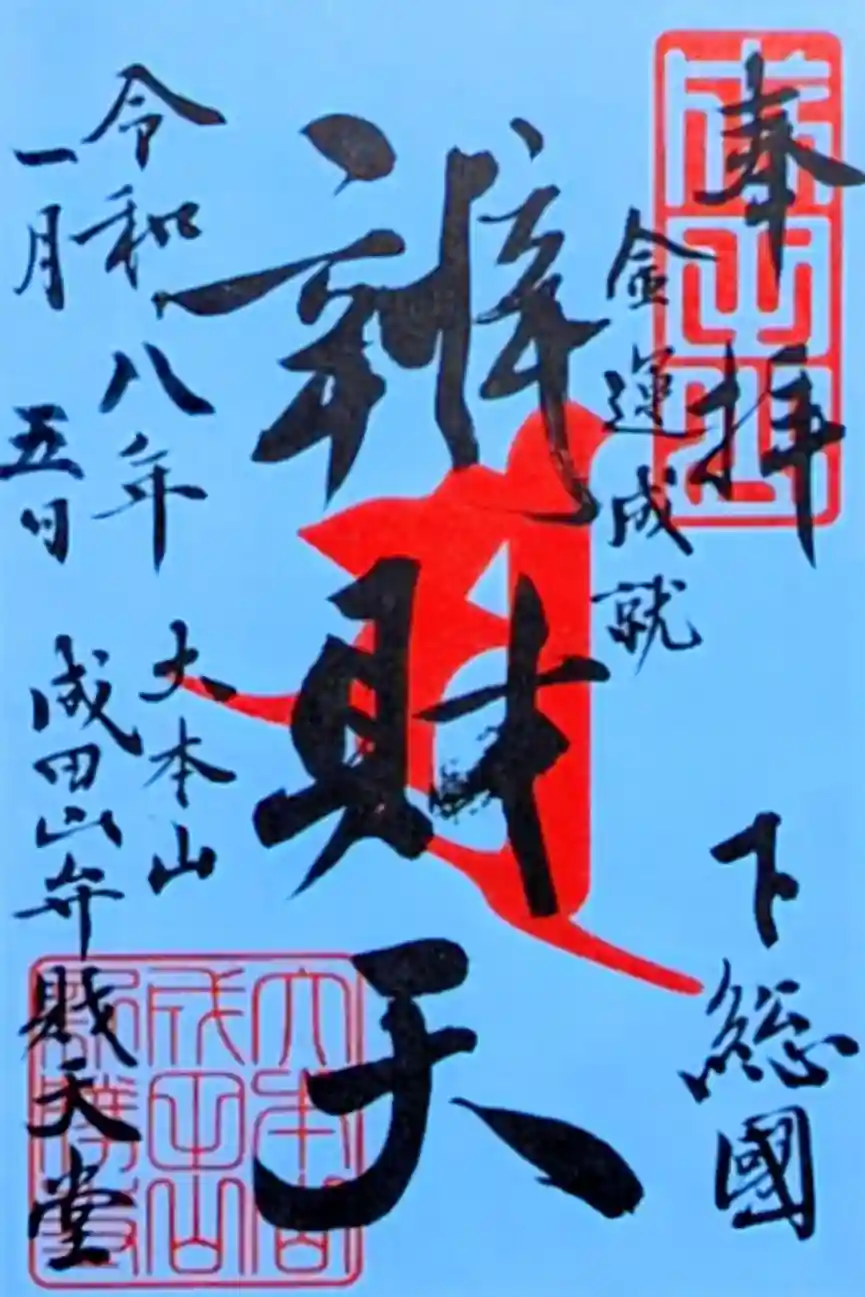 奉拝
金運成就
下総國
成田山
辨財天
令和八年
一月五日
大本山
成田山弁財天堂
大本山成田山新勝寺